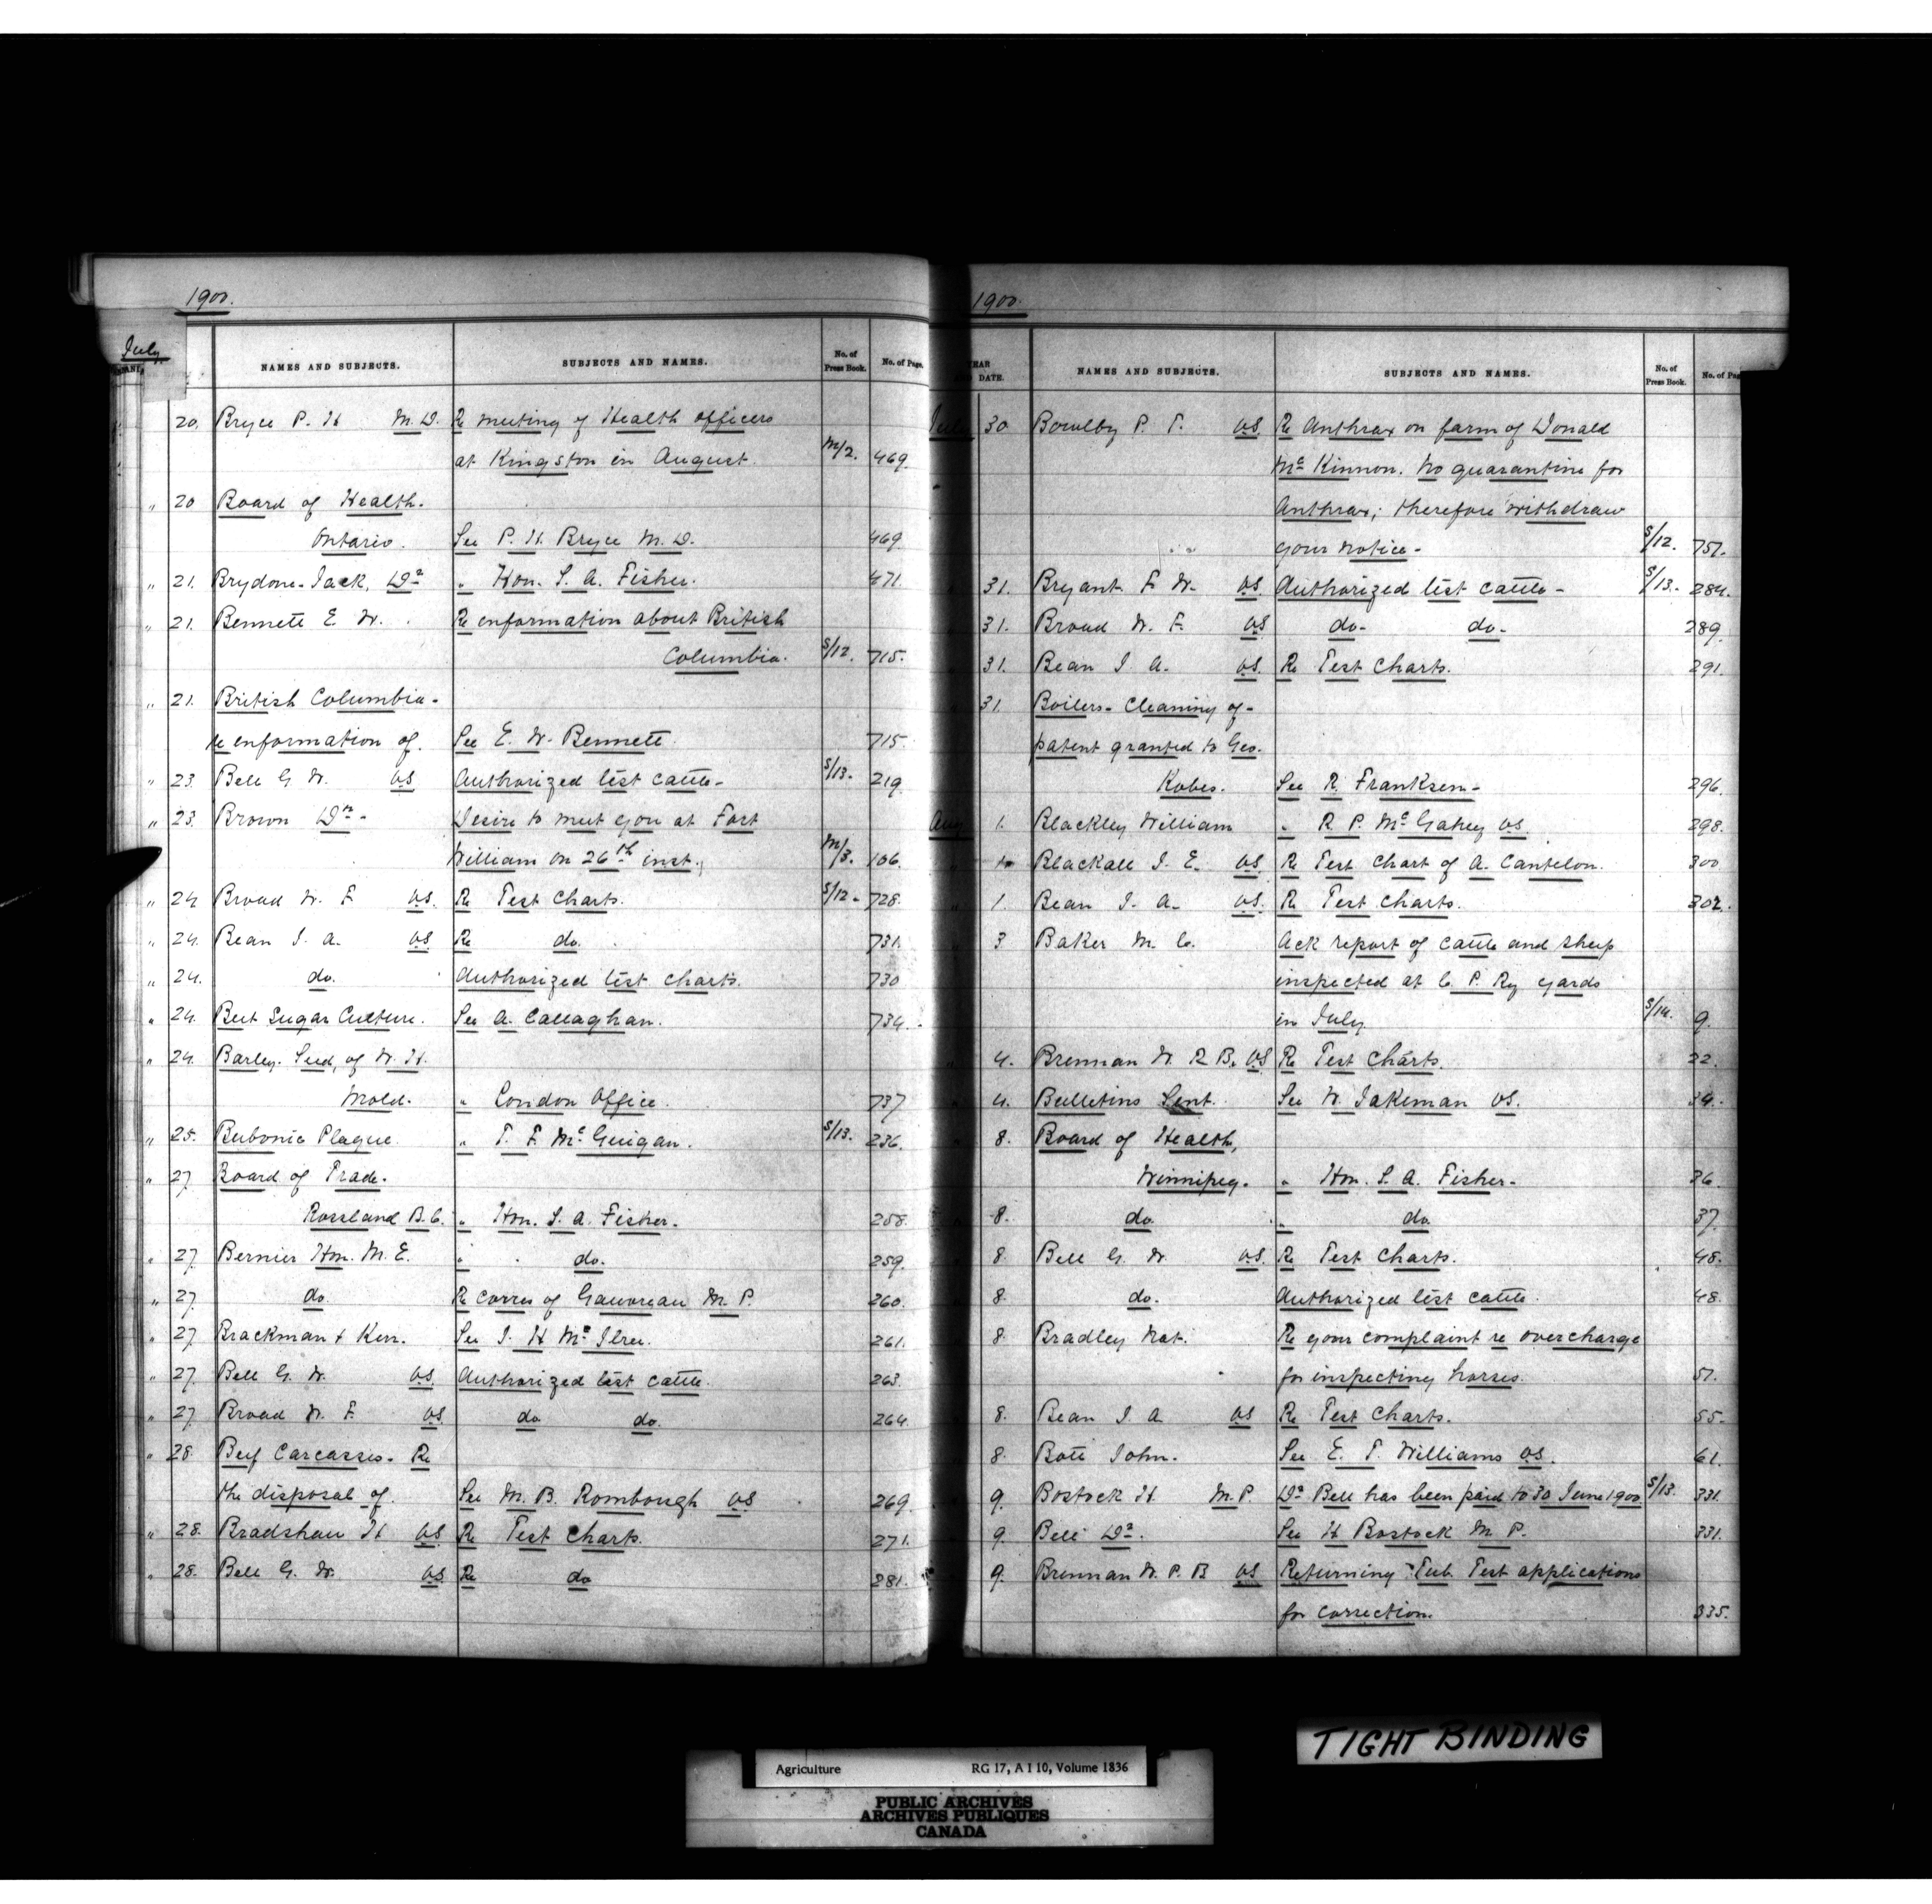 1900.
July
NAMES AND SUBJECTS. SUBJECTS AND NAMES. No. of Press Book. No. of Page.
20. Bryce P. H. M.D. Re meeting of Health officers
at Kingston in August. M/2. 469.
" 20 Board of Health.
Ontario. See P. H. Bryce M.D. 469.
" 21. Brydone-Jack, Dr " Hon. S. A. Fisher. 471.
" 21. Bennett E. W. Re enformation about British
Columbia. S/12. 715.
" 21. British Columbia-
re enformation of. See E. W. Bennett. 715.
" 23. Bell G. W. VS Authorized test cattle- S/13. 219.
" 23. Brown Dr- Desire to meet you at Fort
William on 26th inst. M/3. 106.
" 24 Broad W. F. VS. Re Test Charts. S/12. 728.
" 24. Bean J. A. VS Re do. 731.
" 24. do. Authorized test charts. 730
" 24. Beet Sugar Culture. See A. Callaghan. 734.
" 24. Barley. Seed, of W. H.
Mold. " London Office. 737
" 25. Bubonic Plague. " T. F. McGuigan. S/13. 236.
" 27 Board of Trade.
Rossland B.C. " Hon. S. A. Fisher. 258.
" 27. Bernier Hon. M. E. " do. 259.
" 27. do. Re corres of Gauvreau M. P. 260.
" 27 Brackman & Kerr. See J. H. McIlree. 261.
" 27. Bell G. W. VS. Authorized test cattle. 263.
" 27. Broad W. F. VS do do. 264.
" 28. Beef Carcasses. Re
the disposal of. See M. B. Rombough VS 269.
" 28. Bradshaw H VS Re Test Charts. 271.
" 28. Bell G. W. VS. Re do 281.
1900.
YEAR AND DATE. NAMES AND SUBJECTS. SUBJECTS AND NAMES. No. of Press Book. No. of Pag
July 30 Bowlby P. T. VS Re Anthrax on farm of Donald
McKinnon. No quarantine for
Anthrax; therefore withdraw
your notice- S/12. 751.
31. Bryant F. W. VS. Authorized test cattle- S/13. 284.
31. Broad W. F. VS do- do- 289.
31. Bean J. A. VS. Re Test Charts. 291.
31. Boilers- Cleaning of-
patent granted to Geo.
Kobes. See R. Franksen- 296.
Aug 1. Blackley William " R. P. McGahey VS. 298.
Blackall J. E. VS Re Test Chart of A. Cantelon. 300
" 1. Bean J. A. VS. Re Test Charts. 302.
3 Baker M. C. Ack report of cattle and sheep
inspected at C. P. Ry yards
in July S/14. 9.
4. Brennan W. R B. VS Re Test Charts. 22.
4. Bulletins Sent. See W. Jakeman VS. 34.
8. Board of Health,
Winnipeg. " Hon. S. A. Fisher- 36.
8. do. " do 37.
8. Bell G. W. VS. Re Test Charts. 48.
8. do. Authorized test cattle. 48.
8. Bradley Nat. Re your complaint re overcharge
for inspecting horses. 51.
8. Bean J. A VS Re Test Charts. 55.
8. Bott John. See E. T. Williams VS. 61.
9. Bostock H. M.P. Dr Bell has been paid to 30 June 1900 S/13. 331.
9. Bell Dr. See H Bostock M. P. 331.
9. Brennan W. P. B VS Returning Tub. Test applications
for correction. 335.
TIGHT BINDING
Agriculture RG 17, A I 10, Volume 1836
PUBLIC ARCHIVES
ARCHIVES PUBLIQUES
CANADA